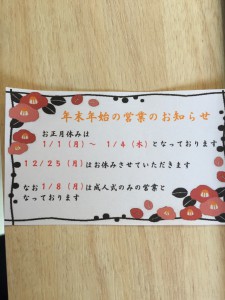 年末年始の営業のお知らせ
お正月休みは
1/1(月)~ 1/4(木)となっております
12/25(月)はお休みさせていただきます
なお1/8(月)は成人式のみの営業と
なっております